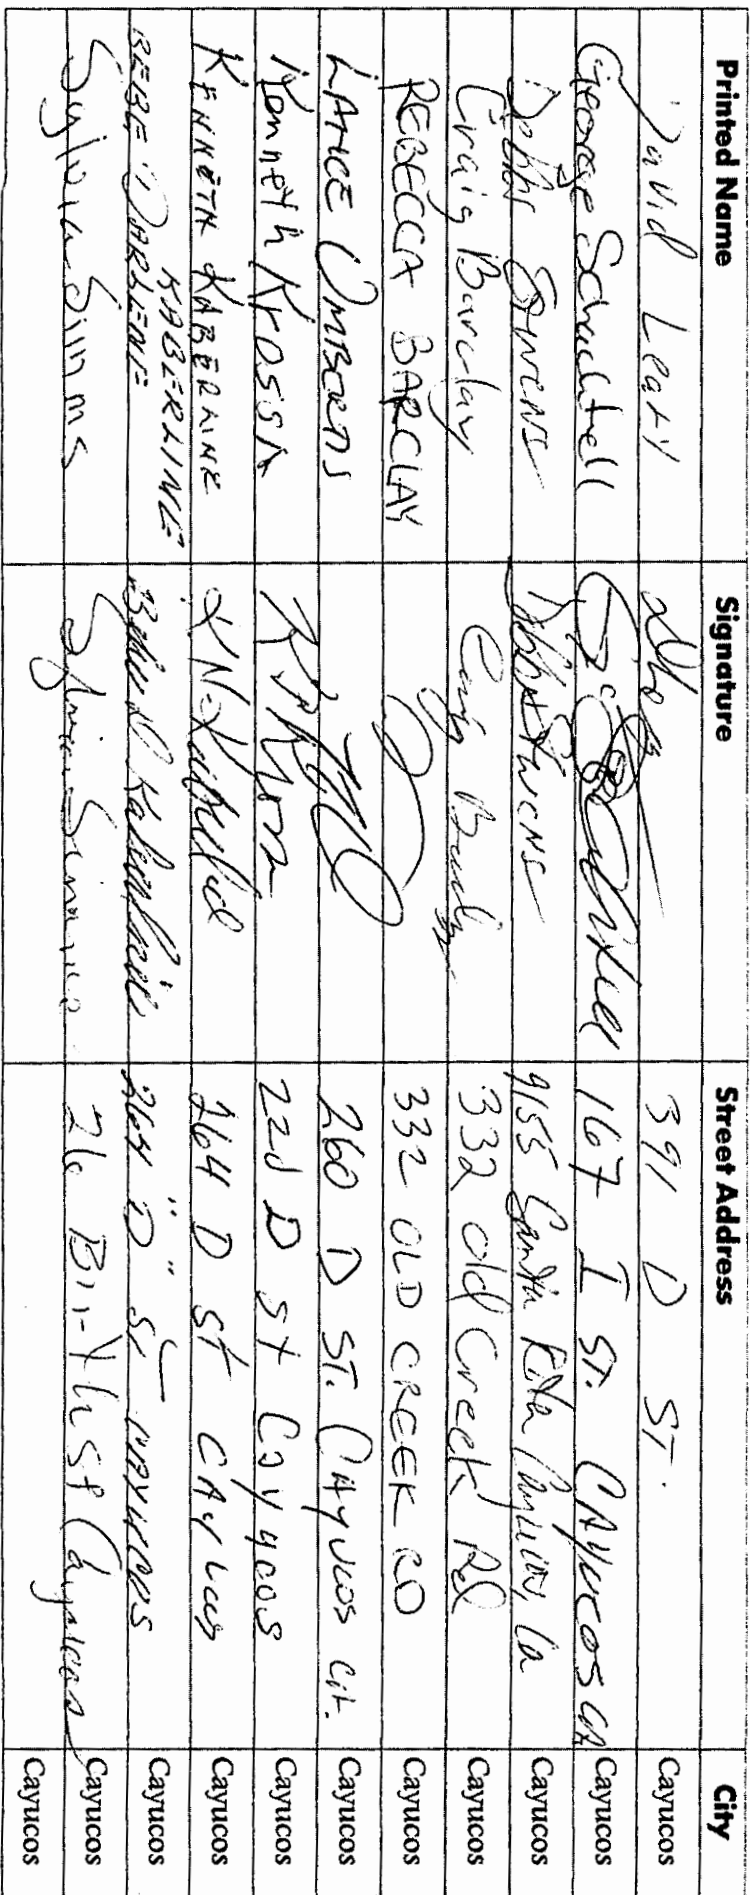 Printed Name Signature Street Address City
David Leary 391 D ST. Cayucos
George Schultell 167 I ST. CAYUCOS CA Cayucos
Debbi Owens Debbi Owens Santa Rita Cayucos, Ca Cayucos
Craig Barclay Craig 332 Old Creek Rd Cayucos
REBECCA BARCLAY 332 OLD CREEK RD Cayucos
LANCE 260 D ST. CAYUCOS Cayucos
Kenneth Krossa 220 D St Cayucos Cayucos
KENNETH KABERLINE 264 D St CAYUCOS Cayucos
BEBE DARLENE KABERLINE 264 "D" St CAYUCOS Cayucos
Sylvia Simms Sylvia Simms 26 Cayucos Cayucos
Cayucos